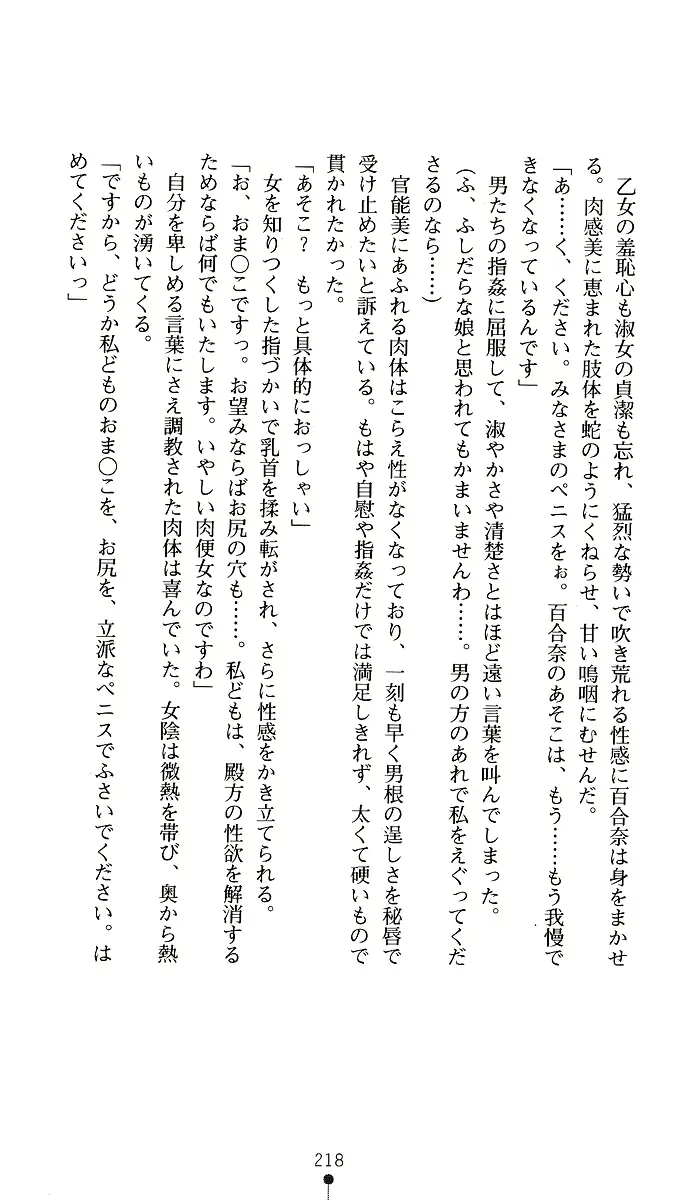 乙女の羞恥心も淑女の貞潔も忘れ、猛烈な勢いで吹き荒れる性感に百合奈は身をまかせ
る。肉感美に恵まれた肢体を蛇のようにくねらせ、甘い嗚咽にむせんだ。
「あ……く、ください。みなさまのペニスをぉ。百合奈のあそこは、もう……もう我慢で
きなくなっているんです」
男たちの指姦に屈服して、淑やかさや清楚さとはほど遠い言葉を叫んでしまった。
(ふ、ふしだらな娘と思われてもかまいませんわ……。男の方のあれで私をえぐってくだ
さるのなら……)
官能美にあふれる肉体はこらえ性がなくなっており、一刻も早く男根の逞しさを秘唇で
受け止めたいと訴えている。もはや自慰や指姦だけでは満足しきれず、太くて硬いもので
貫かれたかった。
「あそこ?　もっと具体的におっしゃい」
女を知りつくした指づかいで乳首を揉み転がされ、さらに性感をかき立てられる。
「お、おま○こですっ。お望みならばお尻の穴も……。私どもは、殿方の性欲を解消する
ためならば何でもいたします。いやしい肉便女なのですわ」
自分を卑しめる言葉にさえ調教された肉体は喜んでいた。女陰は微熱を帯び、奥から熱
いものが湧いてくる。
「ですから、どうか私どものおま○こを、お尻を、立派なペニスでふさいでください。は
めてくださいっ」
218